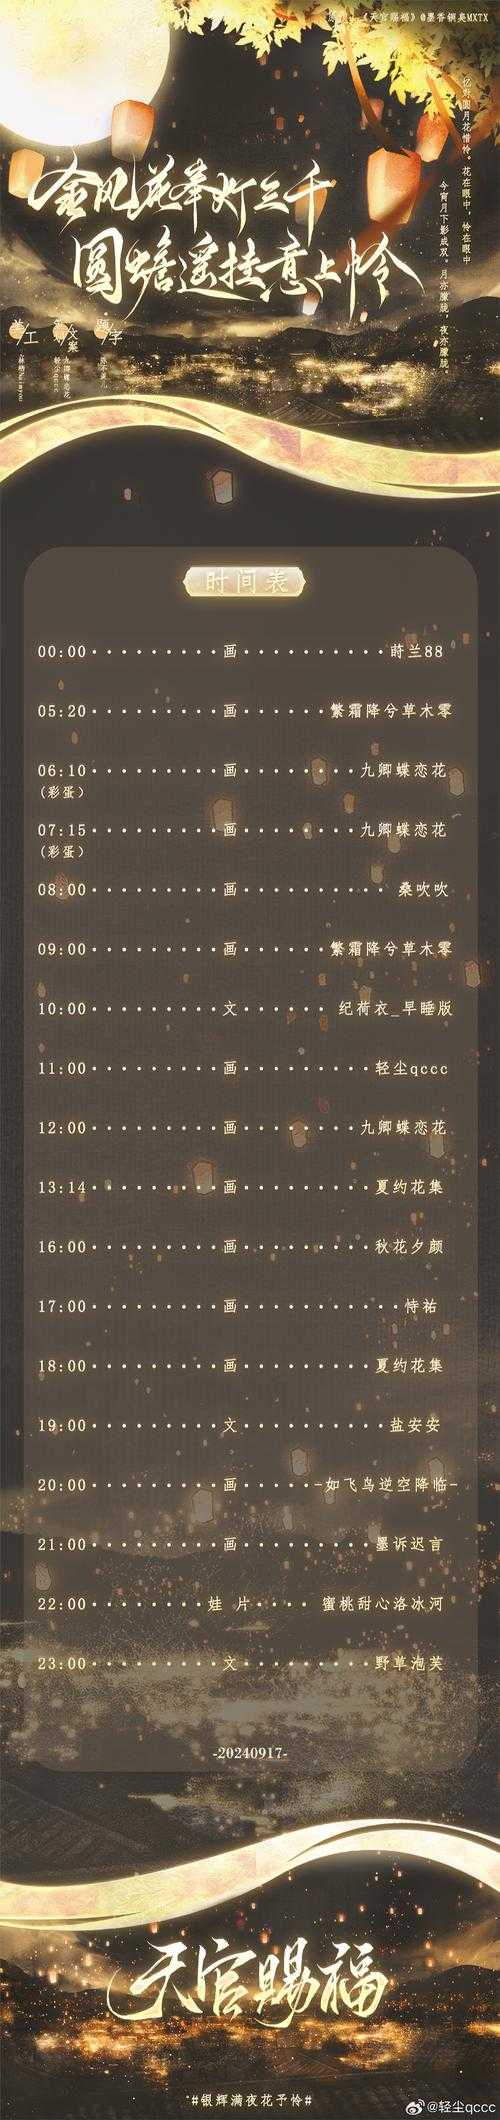 《天官赐福》@墨香铜臭MXTX
忆野圆月花惜怜。花在眼中，怜在眼中
今宵月下影成双。月亦朦胧，夜亦朦胧。
金风花莘灯三千
圆蟾遥挂意上怜
美工
文案
题字
九卿蝶恋花
轻尘qccc
时间表
00:00·········画··········莳兰88
05:20·········画······繁霜降兮草木零
06:10·········画········九卿蝶恋花
(彩蛋)
07:15·········画········九卿蝶恋花
(彩蛋)
08:00·········画··········桑吹吹
09:00·········画······繁霜降兮草木零
10:00·········文······纪荷衣_早睡版
11:00·········画·········轻尘qccc
12:00·········画········九卿蝶恋花
13:14·········画·········夏约花集
16:00·········画·········秋花夕颜
17:00·········画···········恃祐
18:00·········画·········夏约花集
19:00·········文··········盐安安
20:00·········画·····-如飞鸟逆空降临-
21:00·········画·········墨诉迟言
22:00········娃 片···· 蜜桃甜心洛冰河
23:00·········文·········野草泡芙
-20240917-
天官赐福
#银辉满夜花予怜#
@轻尘qccc